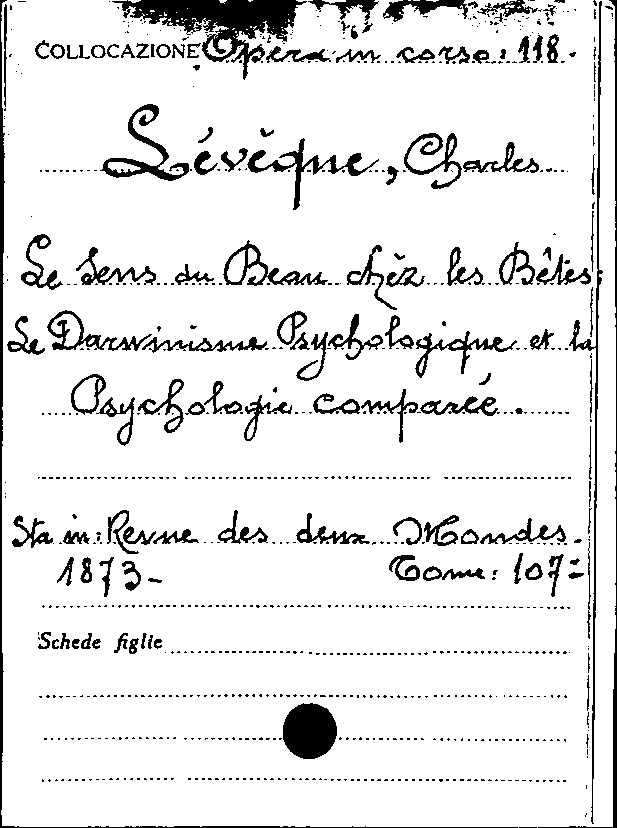 COLLOCAZIONE Opera in corso: 118.
Lévêque, Charles.
Le Sens du Beau chèz les Bêtes;
Le Darwinisme Psychologique et la
Psychologie comparée.
Sta in: Revue des deux Mondes.
1873- Tome: 107=
Schede figlie